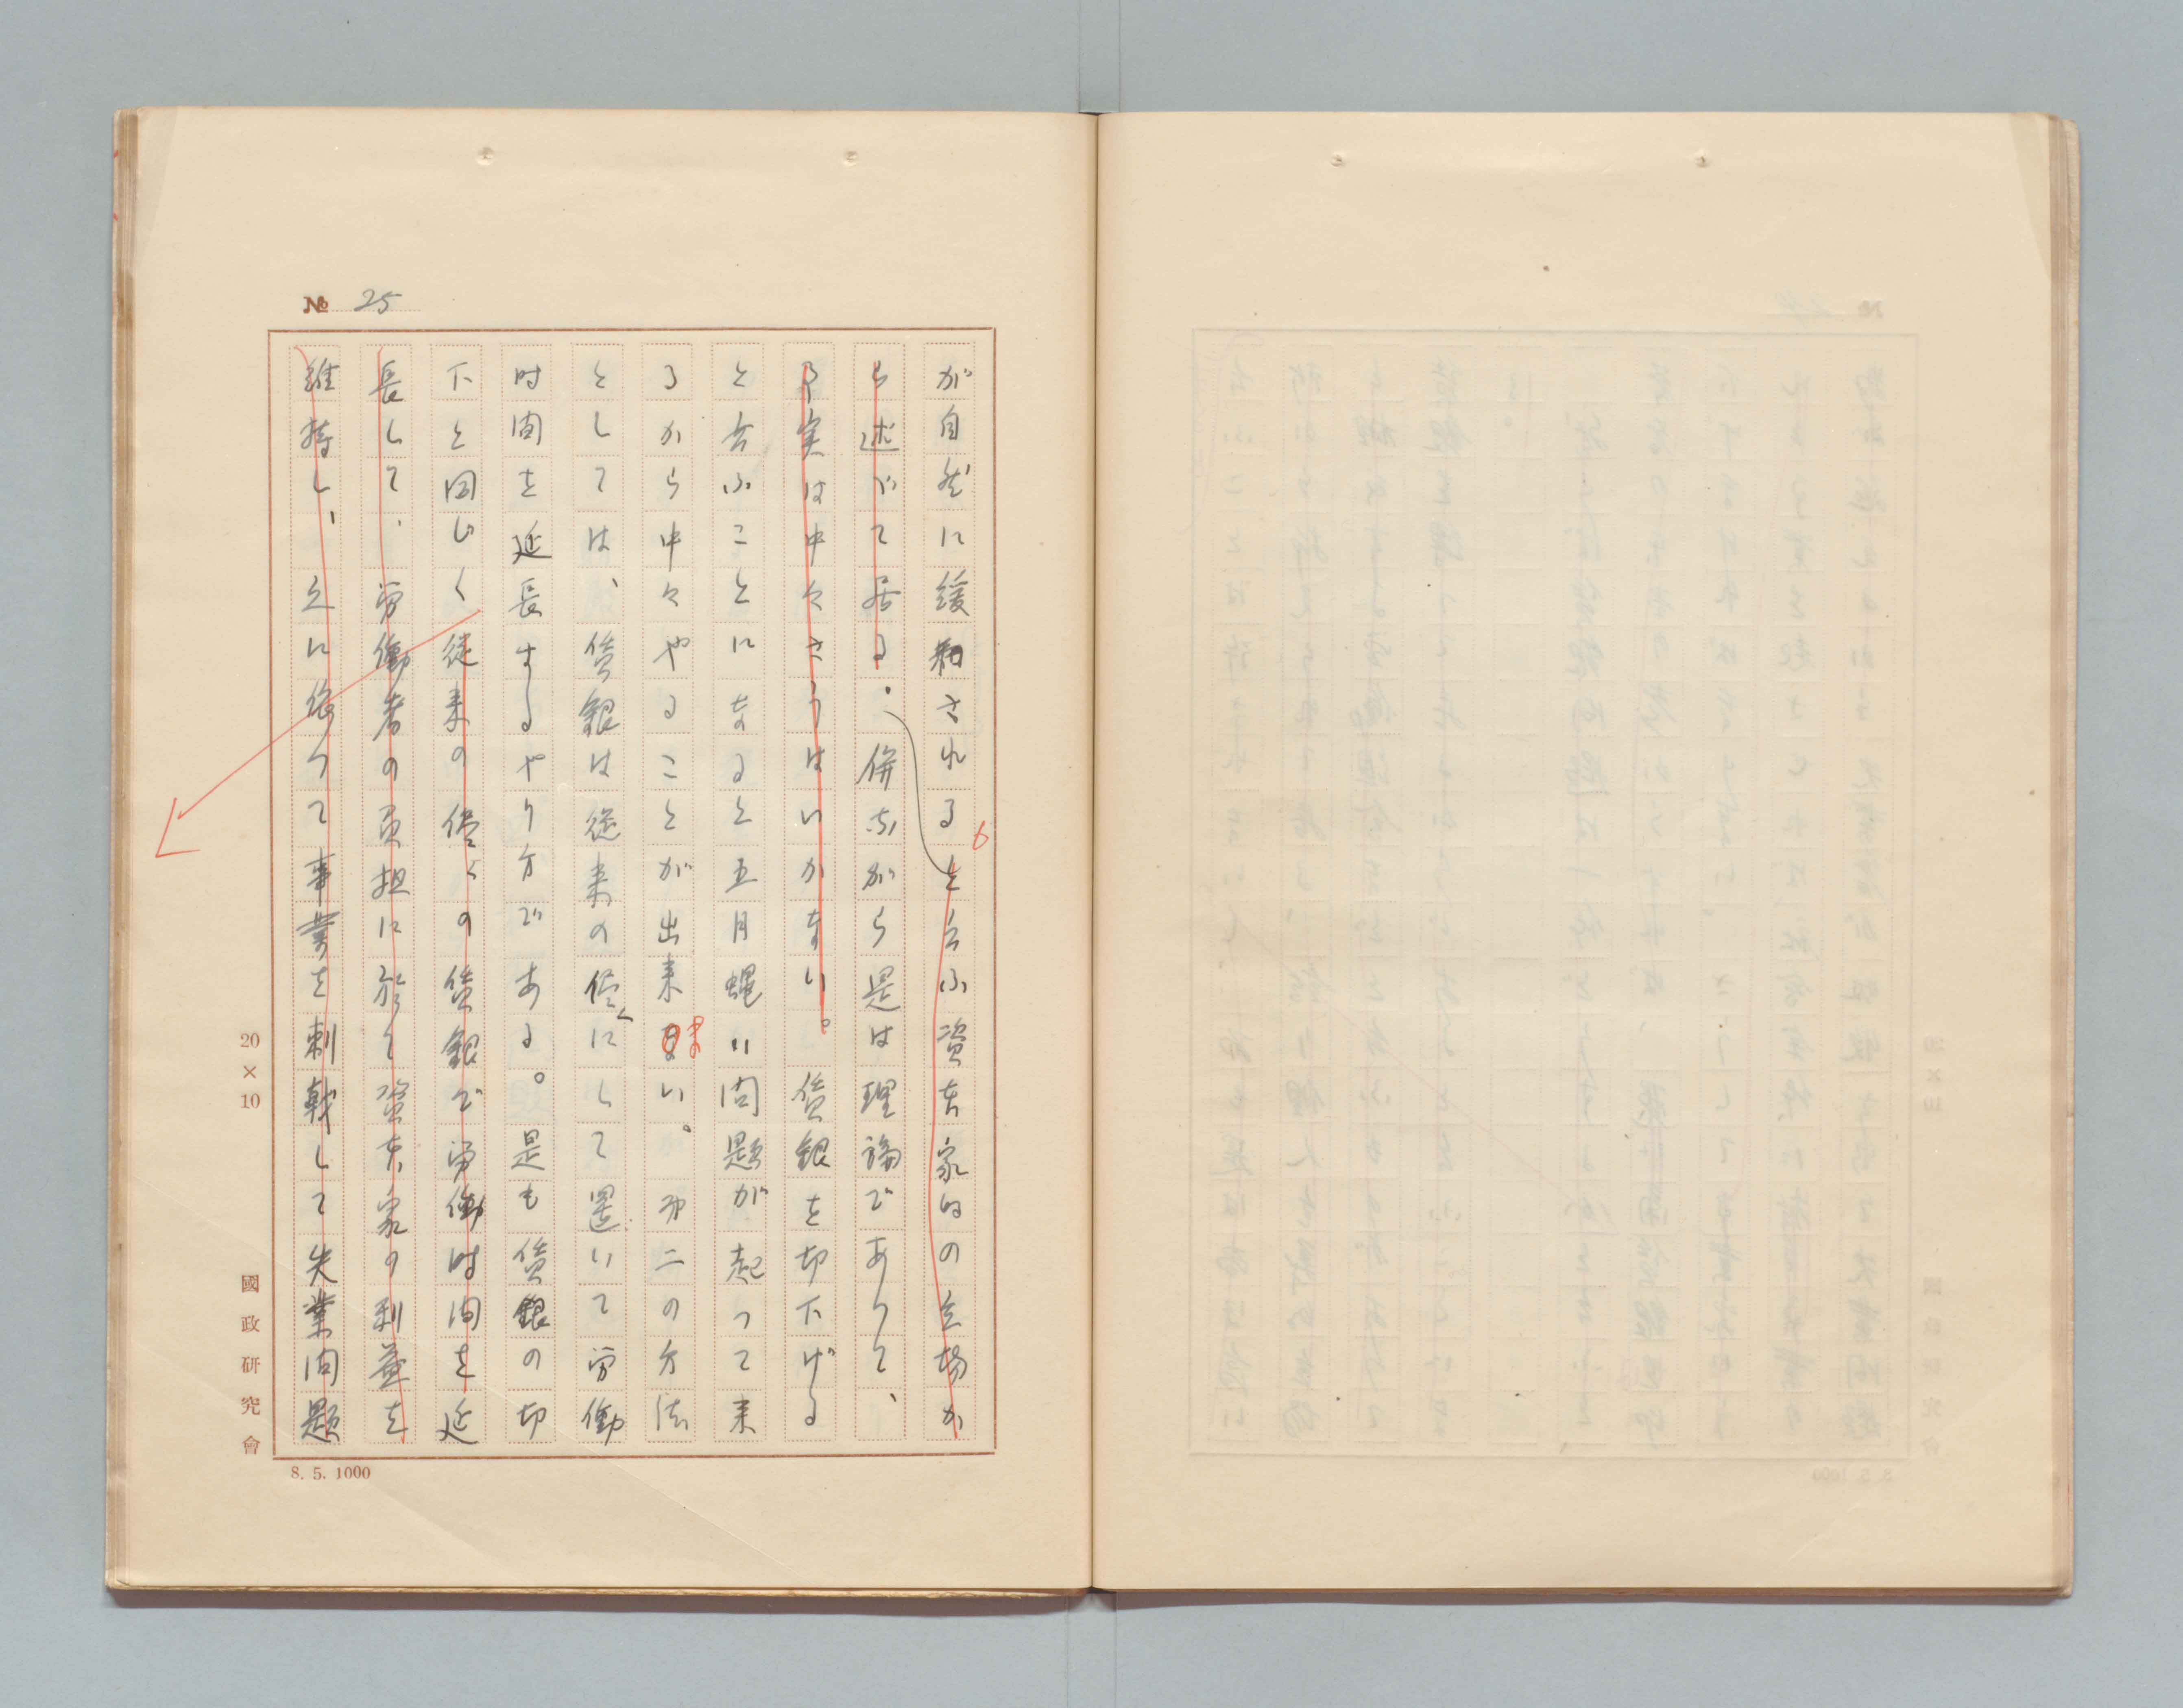 № 25
が自然に緩和されると云ふ資本家的の立場か
ら述べて居る。併乍がら是は理論でありて、
事実は中々さうはいかない。賃銀を切下げる
と云ふことになると五月蠅い問題が起つて来
るから中々やることが出来ない。第二の方法
としては、賃銀は従来の儘にして置いて労働
時間を延長するやり方である。是も賃銀の切
下と同じく従来の儘々の賃銀で労働時間を延
長して、労働者の負担に於て資本家の利益を
維持し、之に依つて事業を刺戟して失業問題
20×10
國政研究會
8. 5. 1000